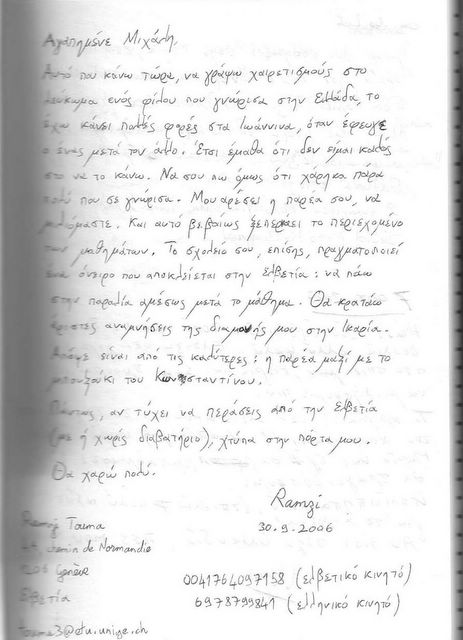 Αγαπημένε Μιχάλη,
Αυτό που κάνω τώρα, να γράψω χαιρετισμούς στο
λεύκωμα ενός φίλου που γνώρισα στην Ελλάδα, το
έχω κάνει πολλές φορές στα Ιωάννινα, όταν έφευγε
ο ένας μετά τον άλλο. Έτσι έμαθα ότι δεν είμαι καλός
στο να το κάνω. Να σου πω όμως ότι χάρηκα πάρα
πολύ που σε γνώρισα. Μου αρέσει η παρέα σου, να
μαλώμαστε. Και αυτό βεβαίως ξεπερνάει το περιεχόμενο
των μαθημάτων. Το σχολείο σου, επίσης, πραγματοποιεί
ένα όνειρο που αποκλείεται στην Ελβετία: να πάω
στην παραλία αμέσως μετά το μάθημα. Θα κρατάω
άριστες αναμνήσεις της διαμονής μου στην Ικαρία.
Απόψε είναι από τις καλύτερες: η παρέα μαζί με το
μπουζούκι του Κωνσταντίνου.
Πάντως, αν τύχει να περάσεις από την Ελβετία
(με ή χωρίς διαβατήριο), χτύπα στην πόρτα μου.
Θα χαρώ πολύ.
Ramzi
30.9.2006
Ramzi Touma
chemin de Normandie
Genève
Ελβετία
0041764097158 (ελβετικό κινητό)
6978799841 (ελληνικό κινητό)
touma3@etu.unige.ch